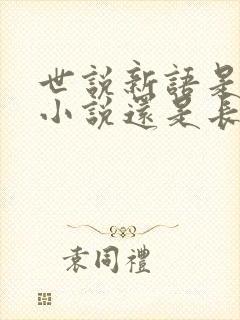 世說新語是
小說還是長
袁同禮